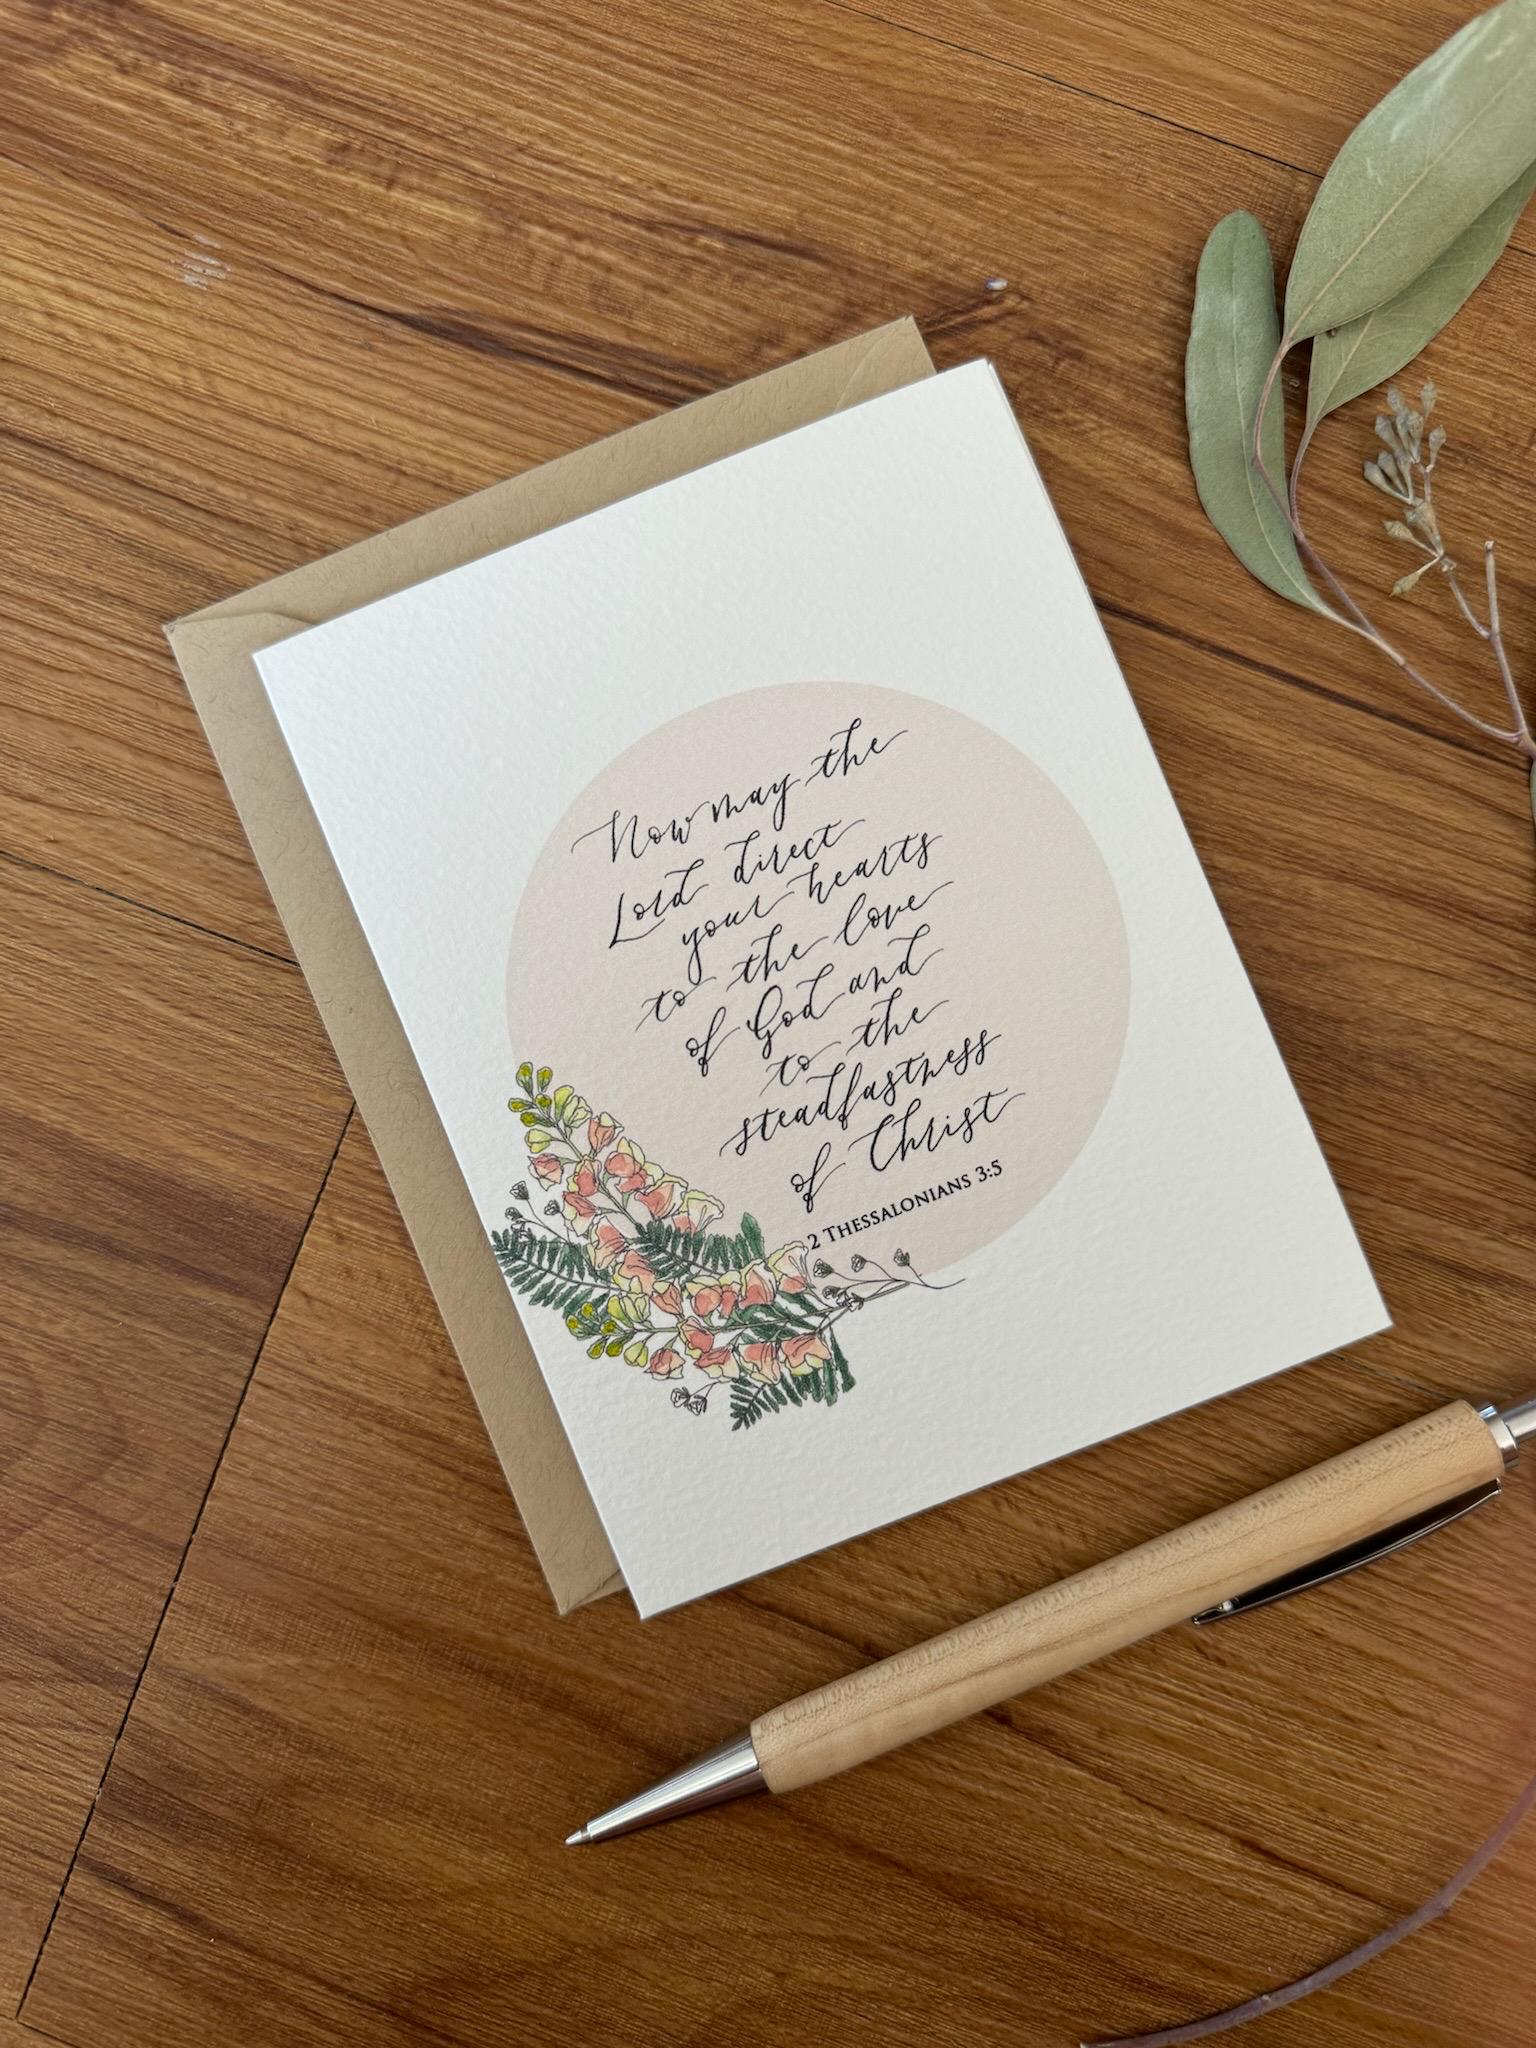 Now may the
Lord direct
your hearts
to the love
of God and
to the
steadfastness
of Christ
2 THESSALONIANS 3:5